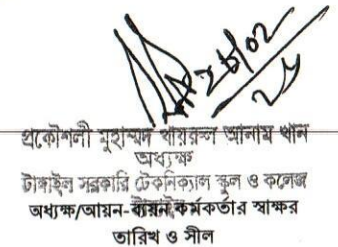 ২৮/০২
২৫
প্রকৌশলী মুহাম্মদ খায়রুল আনাম খান
অধ্যক্ষ
টাঙ্গাইল সরকারি টেকনিক্যাল স্কুল ও কলেজ
অধ্যক্ষ/আয়ন-ব্যয়ন কর্মকর্তার স্বাক্ষর
তারিখ ও সীল